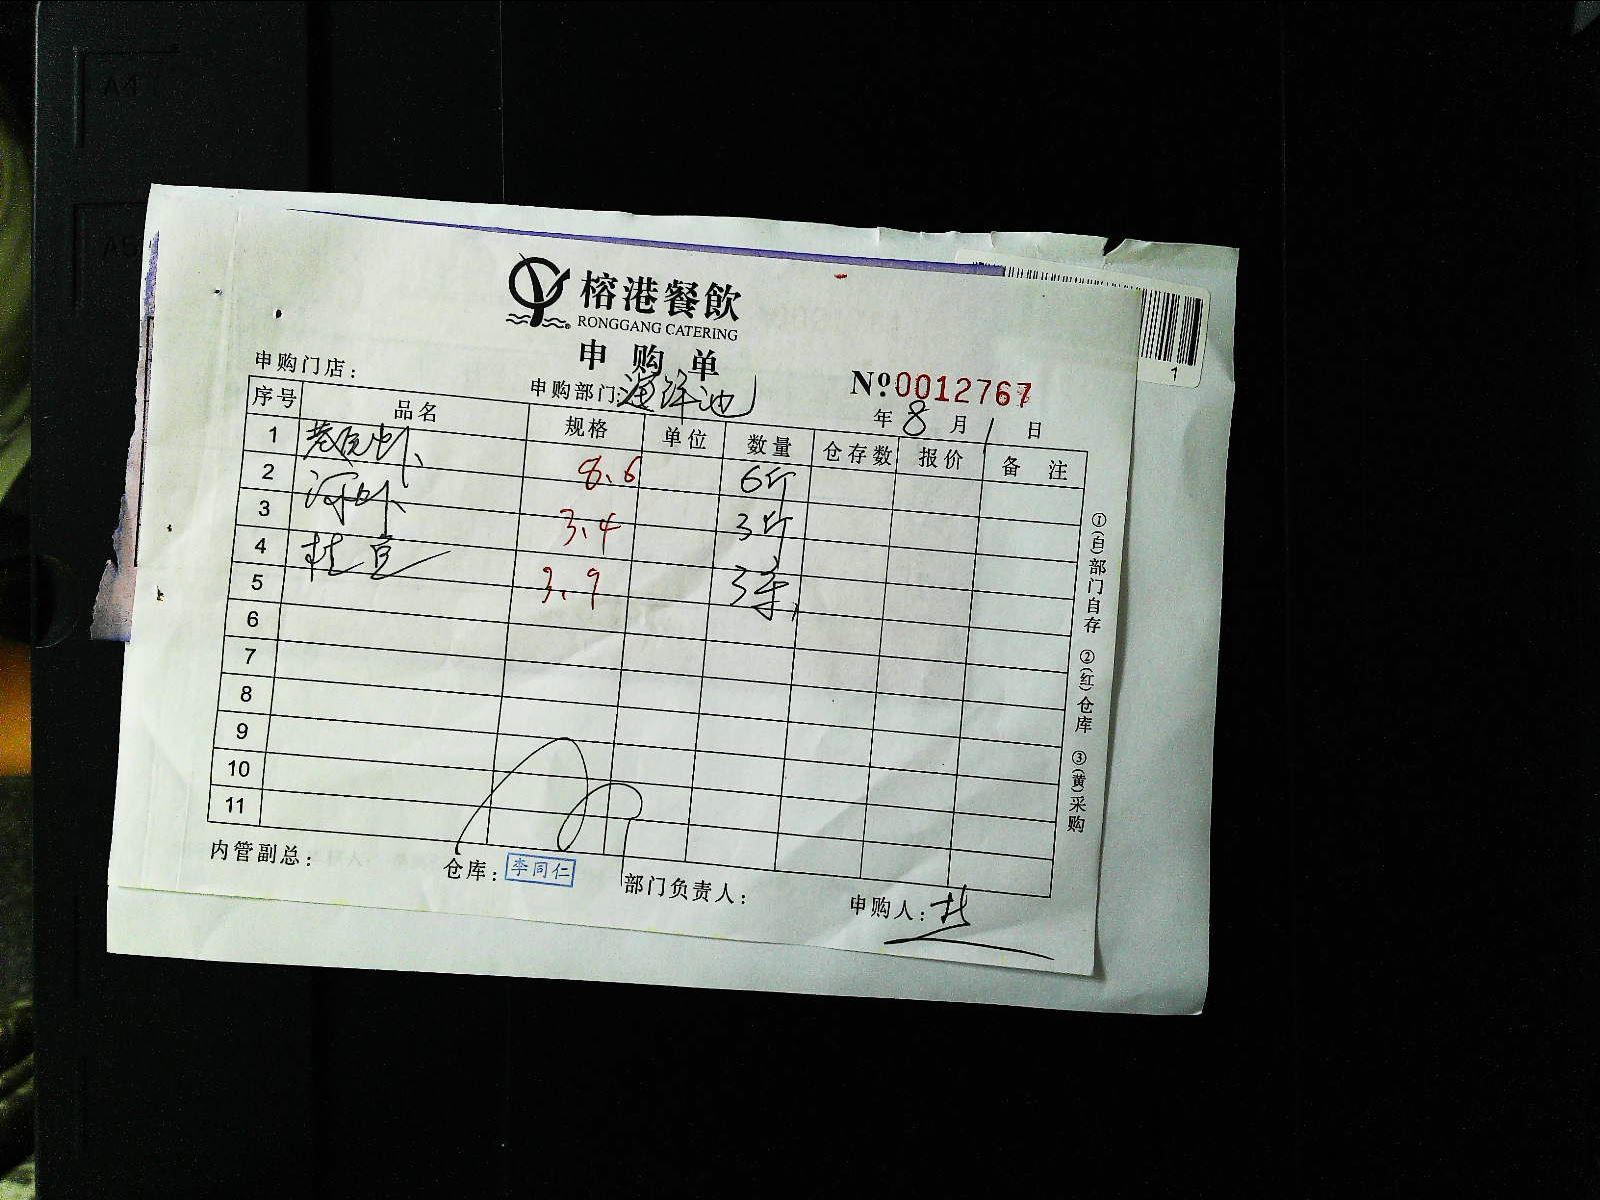 榕港餐飲
RONGGANG CATERING
申购单
申购门店：
申购部门：海鲜池
No.0012767
年 8 月 1 日
序号 品名 规格 单位 数量 仓存数 报价 备注
1 8.6 6斤
2 河虾 3.4 3斤
3 3.9 3条
4
5
6
7
8
9
10
11
①(白)部门自存 ②(红)仓库 ③(黄)采购
内管副总：
仓库：李同仁
部门负责人：
申购人：
A4
A5
1